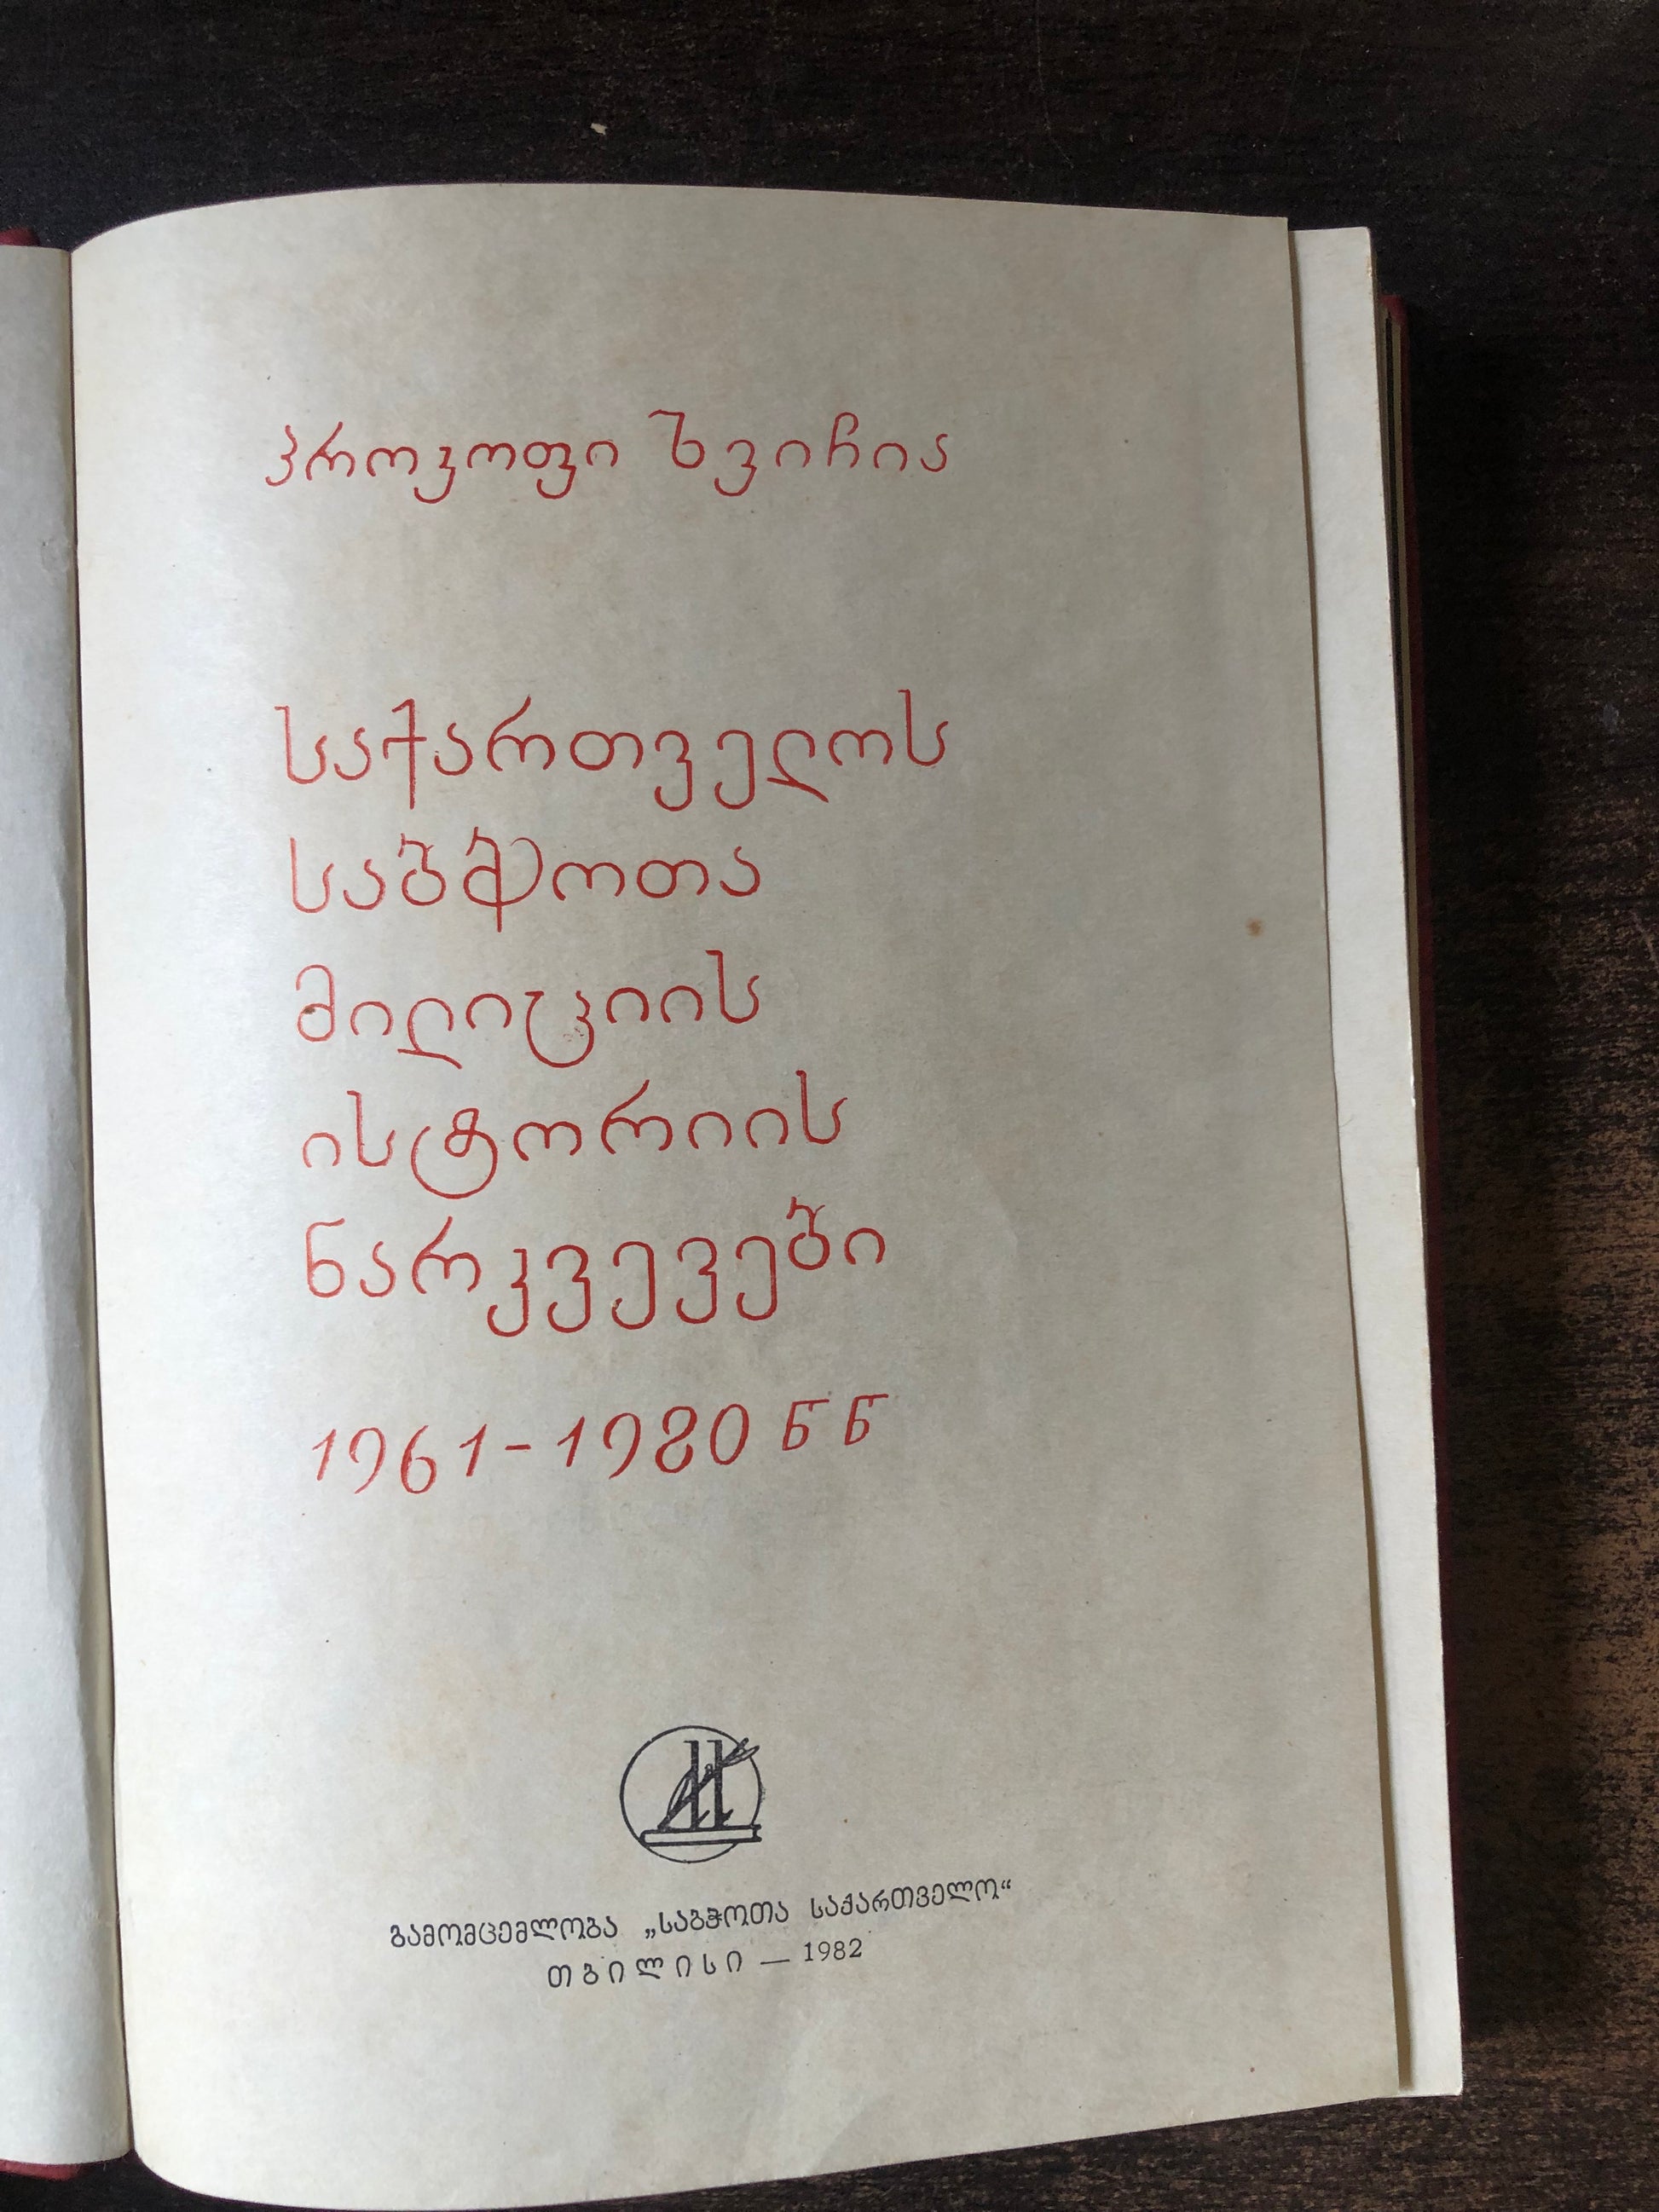 პროკოფი ზვიჩია
საქართველოს
საბჭოთა
მილიციის
ისტორიის
ნარკვევები
1961-1980 წწ
გამომცემლობა „საბჭოთა საქართველო“
თბილისი — 1982